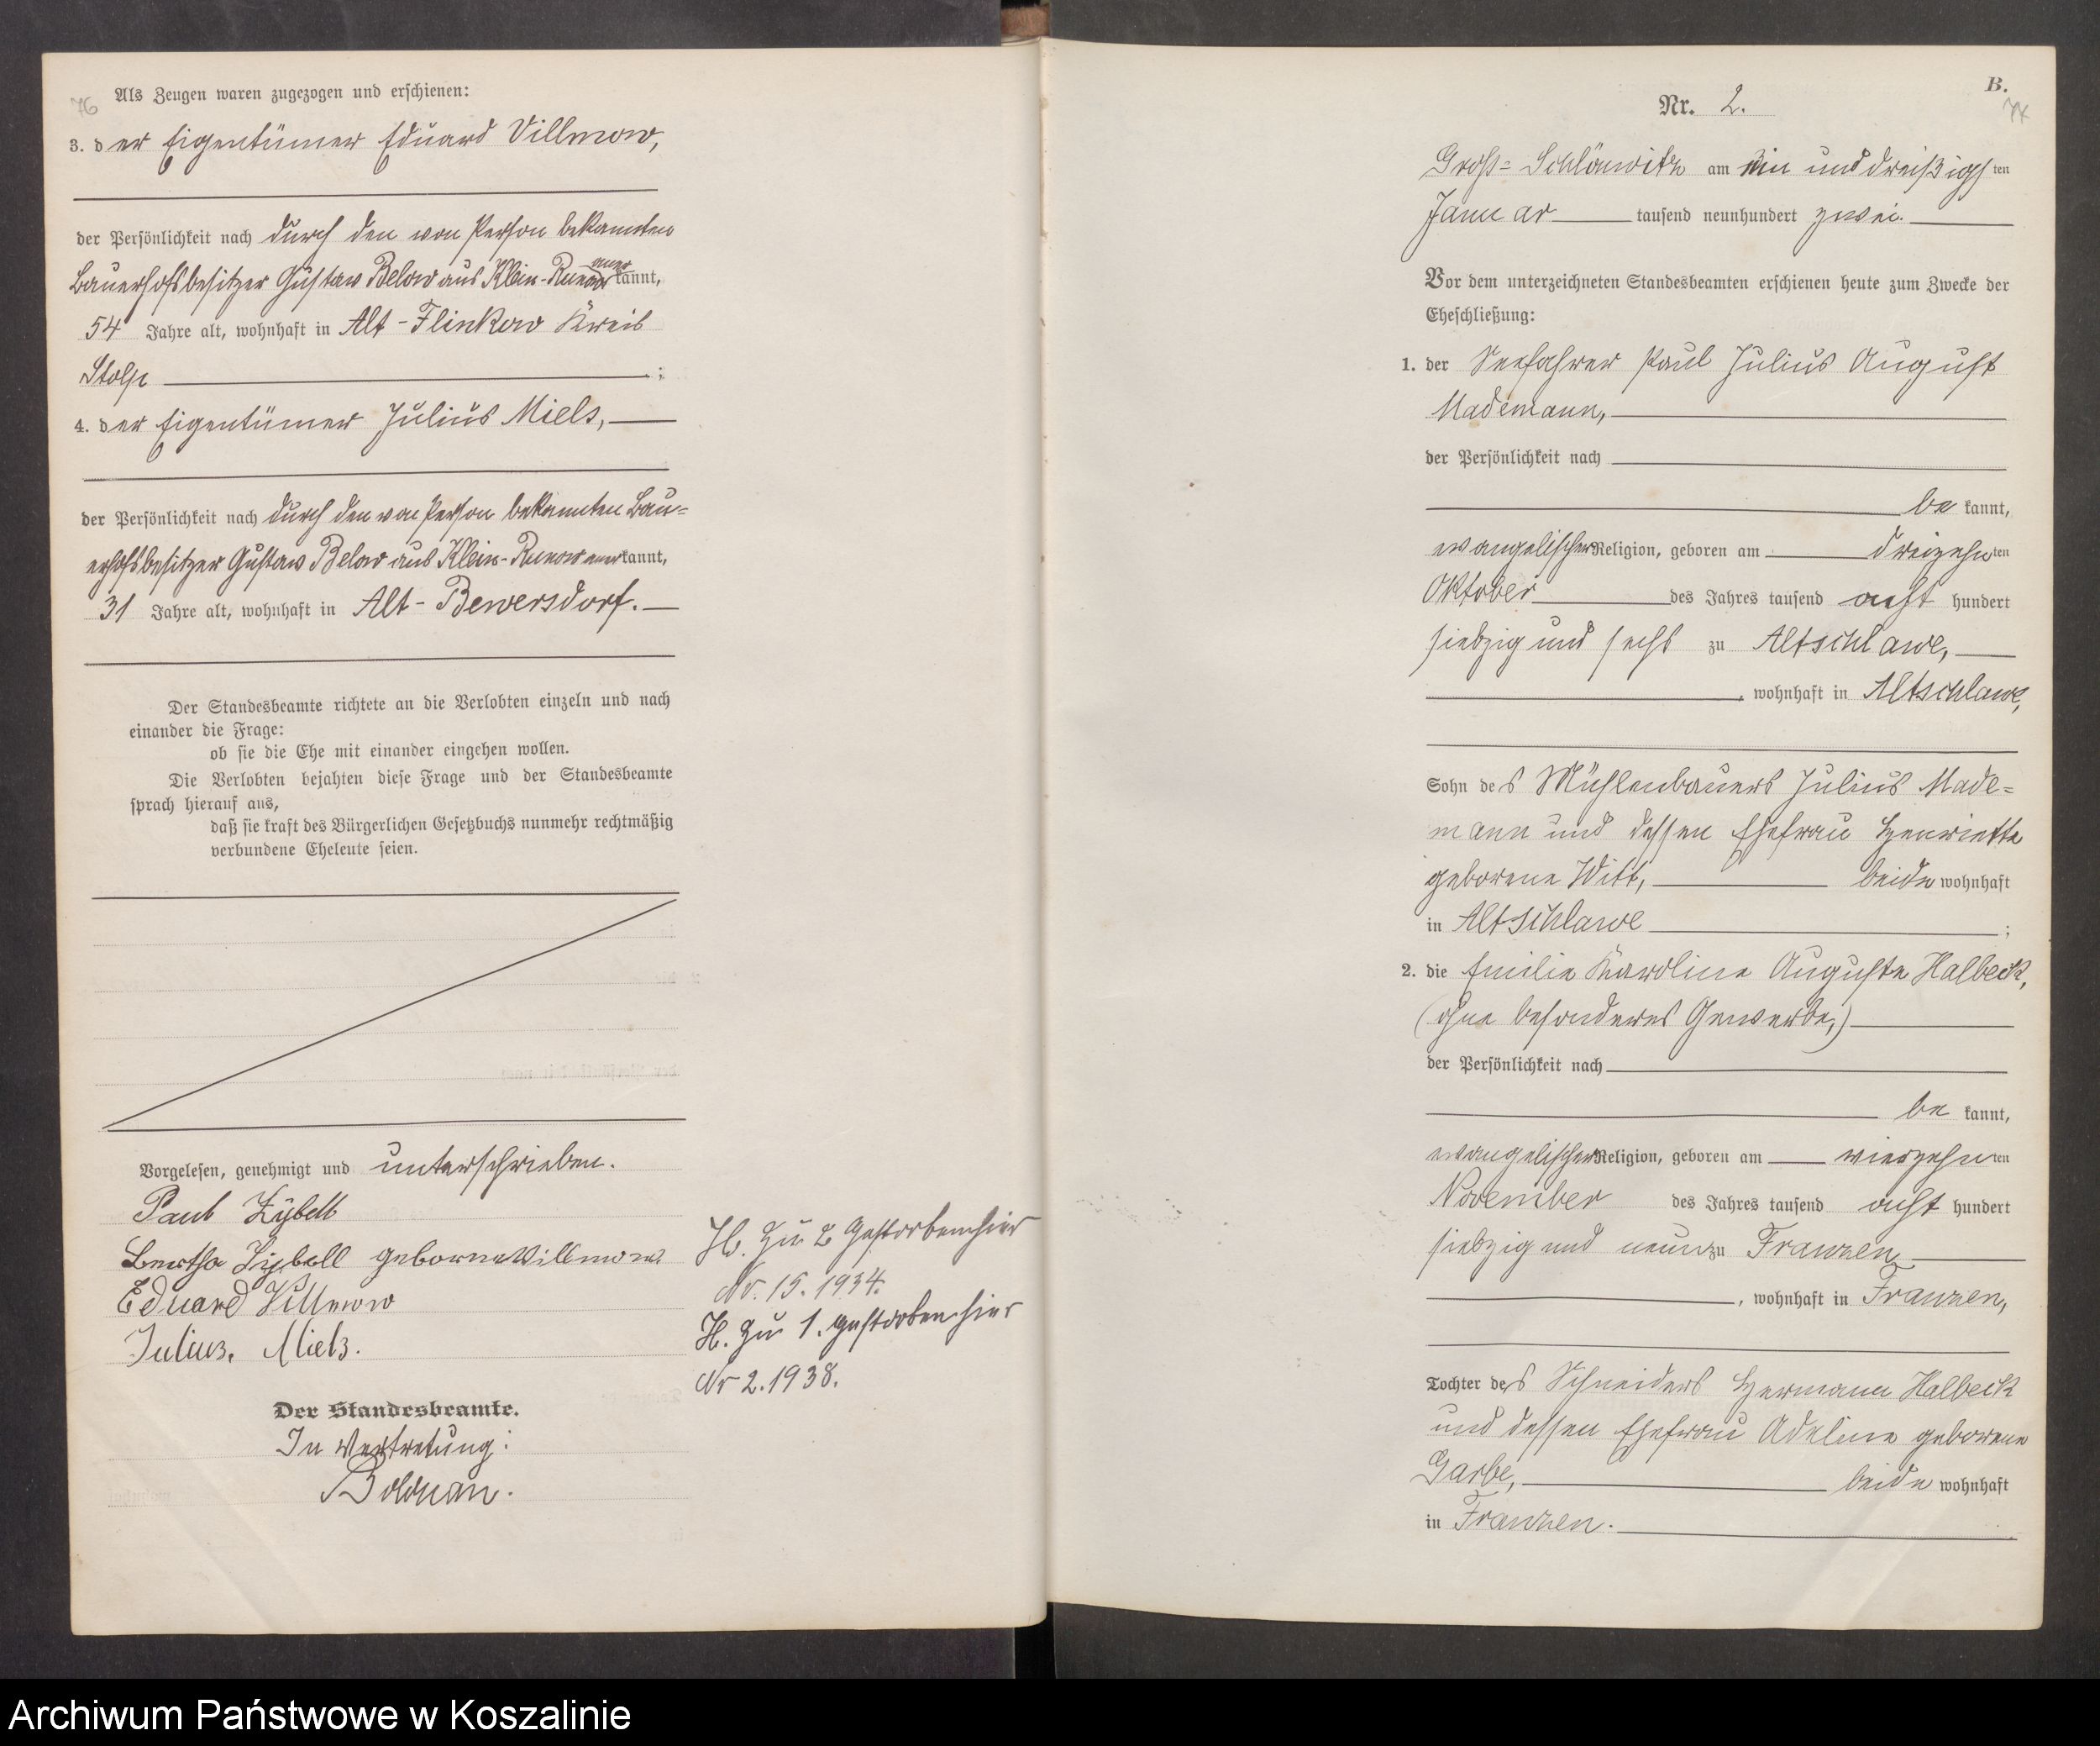 76
Als Zeugen waren zugezogen und erschienen:
3. der Eigentümer Eduard Villmow,
der Persönlichkeit nach durch den von Person bekannten
Bauerhofsbesitzer Gustav Below aus Klein-Runow anerkannt,
54 Jahre alt, wohnhaft in Alt-Flinkow Kreis
Stolp ;
4. der Eigentümer Julius Miels,
der Persönlichkeit nach durch den von Person bekannten Bau=
erhofsbesitzer Gustav Below aus Klein-Runow anerkannt,
31 Jahre alt, wohnhaft in Alt-Bewersdorf.
Der Standesbeamte richtete an die Verlobten einzeln und nach
einander die Frage:
ob sie die Ehe mit einander eingehen wollen.
Die Verlobten bejahten diese Frage und der Standesbeamte
sprach hierauf aus,
daß sie kraft des Bürgerlichen Gesetzbuchs nunmehr rechtmäßig
verbundene Eheleute seien.
Vorgelesen, genehmigt und unterschrieben.
Paul Zybell
Bertha Zybell geborne Villmow
Eduard Villmow
Julius Miels.
Der Standesbeamte.
In Vertretung:
Bolduan.
H. Zu 2 Gestorben hier
Nr. 15. 1934.
H. Zu 1. gestorben hier
Nr 2. 1938.
B.
77
Nr. 2.
Groß=Schlönwitz am ein und dreißigsten
Januar tausend neunhundert zwei.
Vor dem unterzeichneten Standesbeamten erschienen heute zum Zwecke der
Eheschließung:
1. der Seefahrer Paul Julius August
Mademann,
der Persönlichkeit nach
be kannt,
evangelischer Religion, geboren am dreizehnten
Oktober des Jahres tausend acht hundert
siebzig und sechs zu Altschlawe,
, wohnhaft in Altschlawe,
Sohn des Mühlenbauers Julius Made=
mann und dessen Ehefrau Henriette
geborene Witt, beide wohnhaft
in Altschlawe ;
2. die Emilie Karoline Auguste Halbeck,
(ohne besonderes Gewerbe,)
der Persönlichkeit nach
be kannt,
evangelischer Religion, geboren am vierzehnten
November des Jahres tausend acht hundert
siebzig und neun zu Franzen
, wohnhaft in Franzen,
Tochter des Schneiders Hermann Halbeck
und dessen Ehefrau Adeline geborene
Garbe, beide wohnhaft
in Franzen.
Archiwum Państwowe w Koszalinie